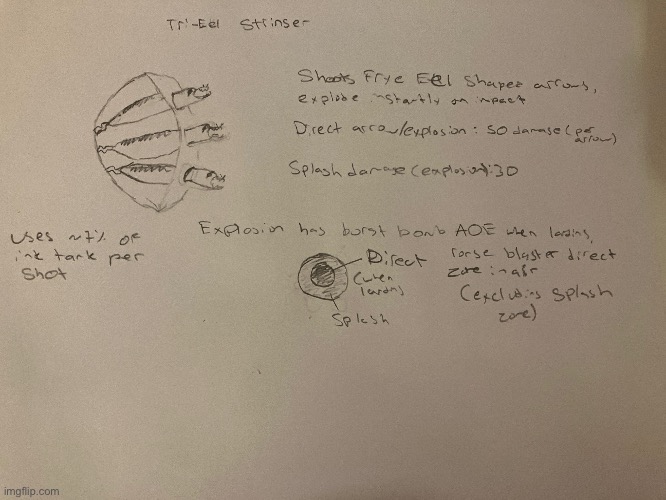 Tri-Eel Stringer
Shoots Frye Eel Shaped arrows,
explode instantly on impact
Direct arrow/explosion: 50 damage (per
arrow)
Splash damage (explosion): 30
Explosion has burst bomb AOE when landing,
range blaster direct
zone in air
(excluding splash
zone)
uses ~7% of
ink tank per
shot
Direct
(when
landing)
Splash
imgflip.com